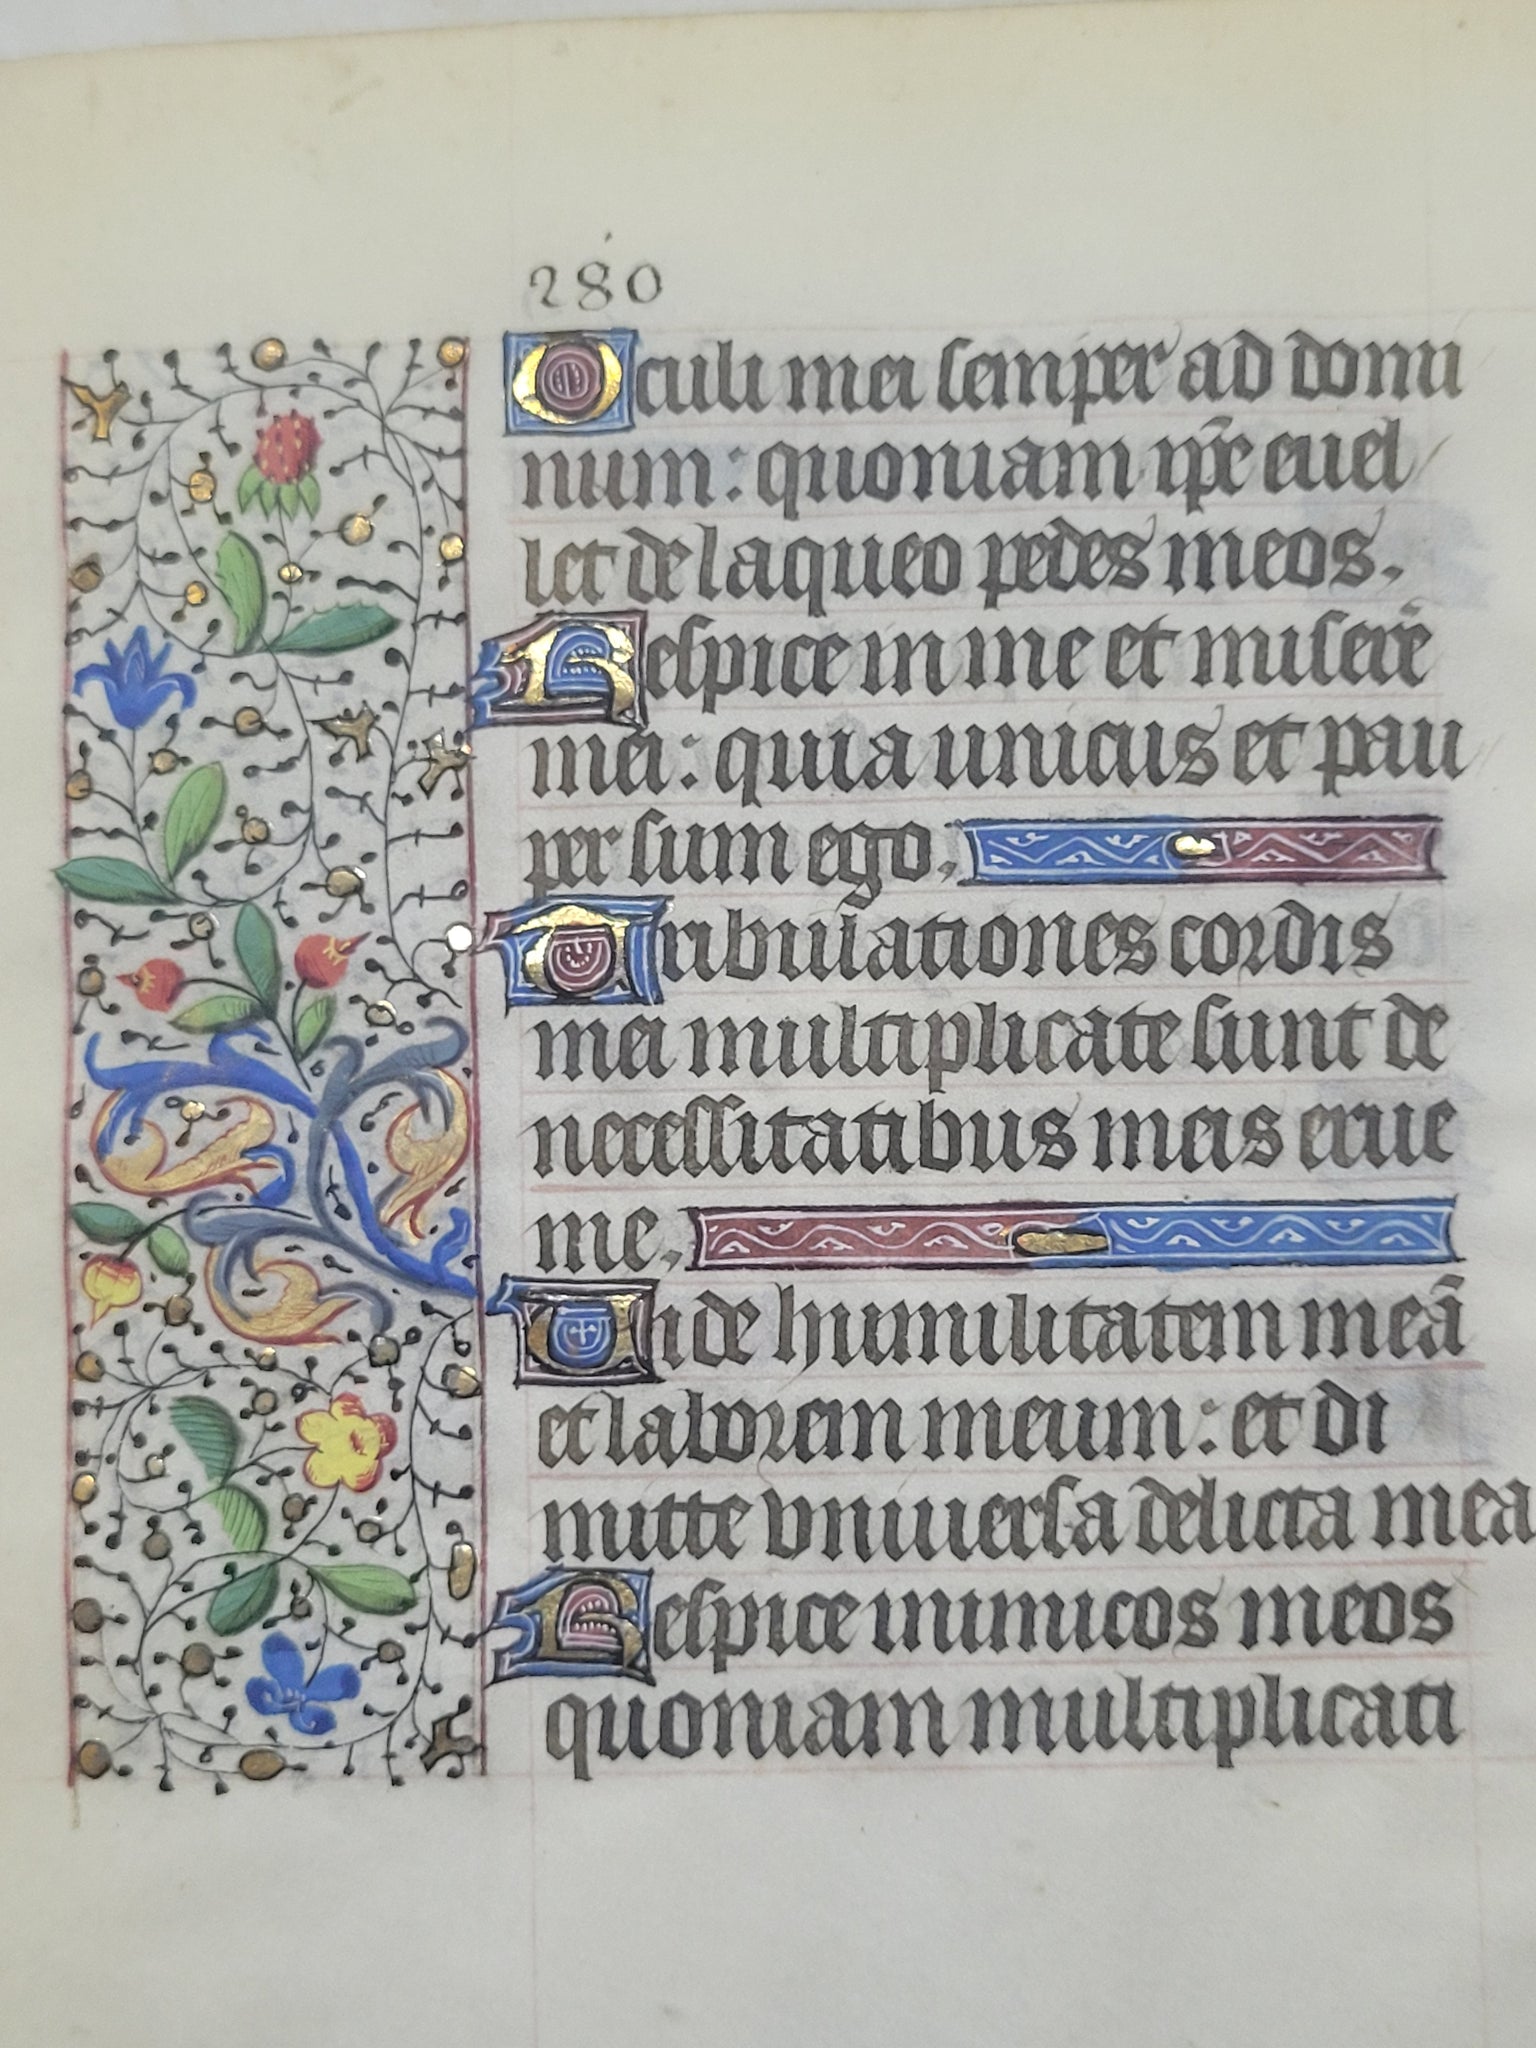 280
Oculi mei semper ad domi
num: quoniam ip̄e euel
let de laqueo pedes meos.
Respice in me et miserē
mei: quia unicus et pau
per sum ego.
Tribulationes cordis
mei multiplicate sunt de
necessitatibus meis erue
me.
Uide humilitatem meā
et laborem meum: et di
mitte vniuersa delicta mea
Respice inimicos meos
quoniam multiplicati